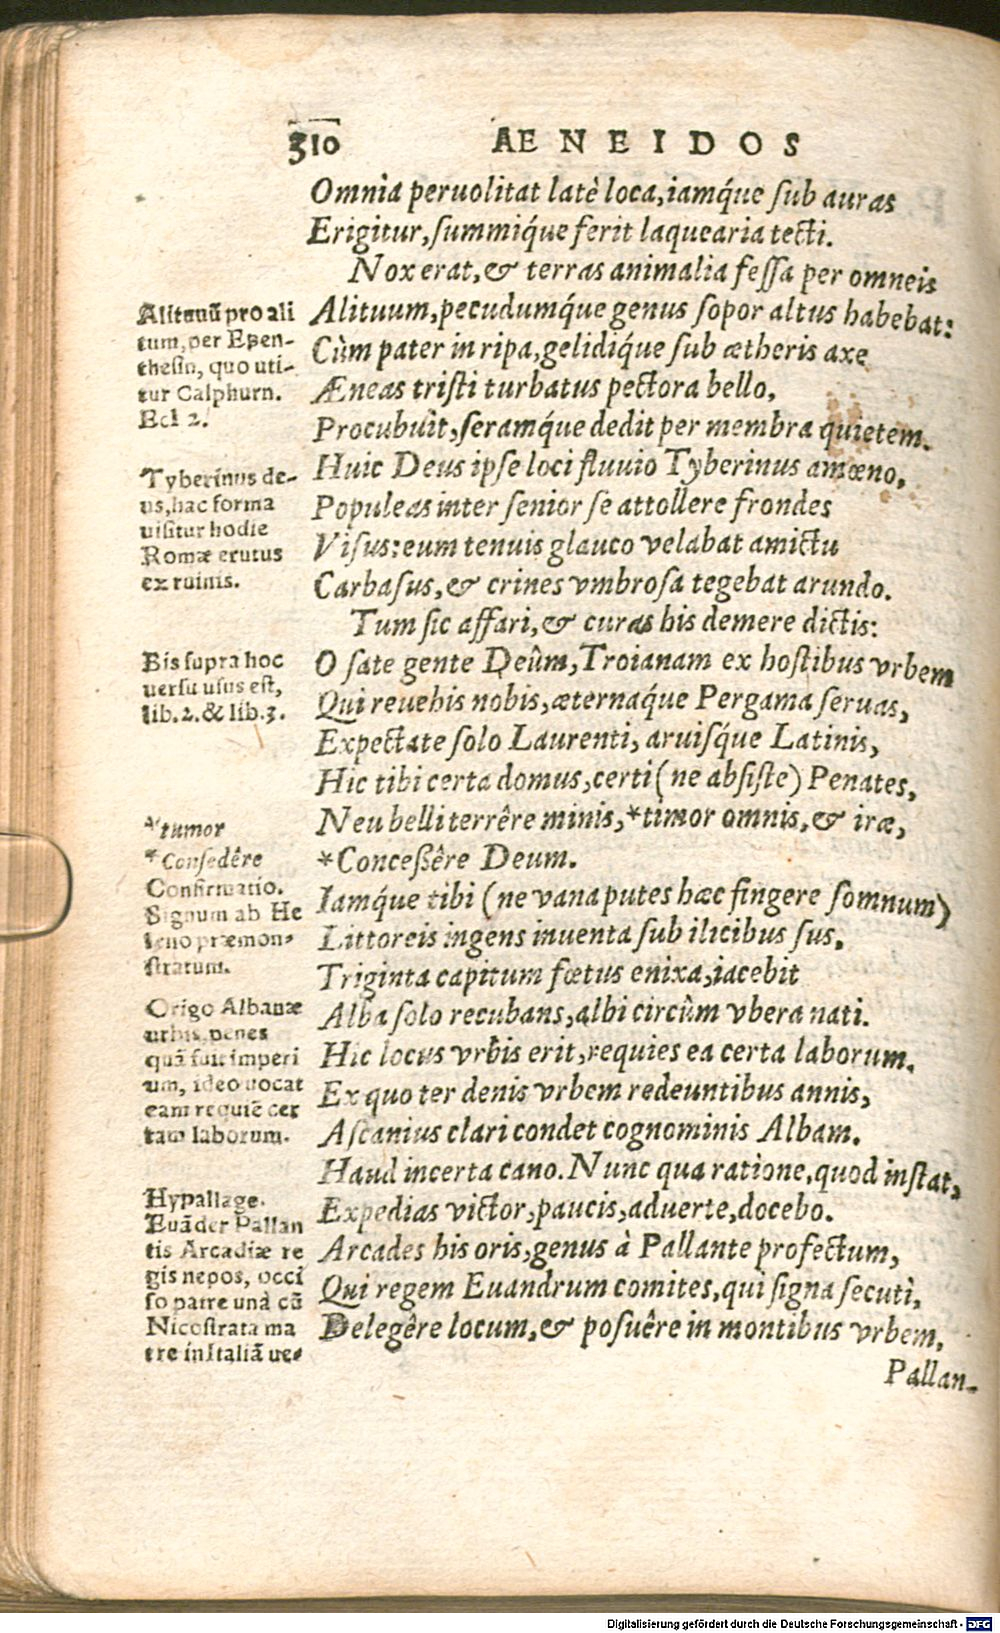 310 AENEIDOS
Omnia peruolitat latè loca, iamq́ue ſub auras
Erigitur, ſummiq́ue ferit laquearia tecti.
Nox erat, & terras animalia feſſa per omneis
Alituum, pecudumq́ue genus ſopor altus habebat:
Cùm pater in ripa, gelidiq́ue ſub ætheris axe
Æneas triſti turbatus pectora bello,
Procubuit, ſeramq́ue dedit per membra quietem.
Huic Deus ipſe loci fluuio Tyberinus amœno,
Populeas inter ſenior ſe attollere frondes
Viſus: eum tenuis glauco velabat amictu
Carbaſus, & crines vmbroſa tegebat arundo.
Tum ſic affari, & curas his demere dictis:
O ſate gente Deûm, Troianam ex hoſtibus vrbem
Qui reuehis nobis, æternaq́ue Pergama ſeruas,
Expectate ſolo Laurenti, aruiſq́ue Latinis,
Hic tibi certa domus, certi (ne abſiſte) Penates,
Neu belli terrêre minis, *timor omnis, & iræ,
*Conceßêre Deum.
Iamq́ue tibi (ne vana putes hæc fingere ſomnum)
Littoreis ingens inuenta ſub ilicibus ſus,
Triginta capitum fœtus enixa, iacebit
Alba ſolo recubans, albi circûm vbera nati.
Hic locus vrbis erit, requies ea certa laborum.
Ex quo ter denis vrbem redeuntibus annis,
Aſcanius clari condet cognominis Albam.
Haud incerta cano. Nunc qua ratione, quod inſtat,
Expedias victor, paucis, aduerte, docebo.
Arcades his oris, genus à Pallante profectum,
Qui regem Euandrum comites, qui ſigna ſecuti,
Delegêre locum, & poſuêre in montibus vrbem,
Pallan-
Alituũ pro ali
tum, per Epen-
theſin, quo uti-
tur Calphurn.
Ecl 2.
Tyberinus de-
us, hac forma
uiſitur hodie
Romæ erutus
ex ruinis.
Bis ſupra hoc
uerſu uſus eſt,
lib. 2. & lib. 3.
*tumor
*Conſedêre
Confirmatio.
Signum ab He
leno præmon-
ſtratum.
Origo Albanæ
urbis penes
quã fuit imperi
um, ideo uocat
eam requiẽ cer
tam laborum.
Hypallage.
Euãder Pallan
tis Arcadiæ re
gis nepos, occi
ſo patre unà cũ
Nicoſtrata ma
tre in Italiã ue-
Digitalisierung gefördert durch die Deutsche Forschungsgemeinschaft - DFG